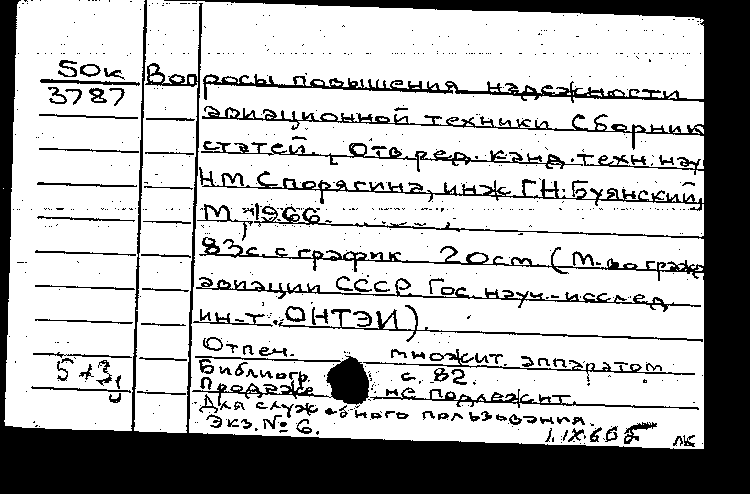 50к Вопросы повышения надежности
3787
авиационной техники Сборник
статей. [Отв. ред. канд. техн. нау
Н.М. Спорягина, инж. Г.Н. Буянский,
М, 1966.
83с. с график 20см (М-во гражд
авиации СССР. Гос. науч.-исслед.
ин-т. ОНТЭИ).
Отпеч. множит. аппаратом
Библиогр. с. 82.
Продаже не подлежит.
Для служебного пользования.
Экз. № 6.